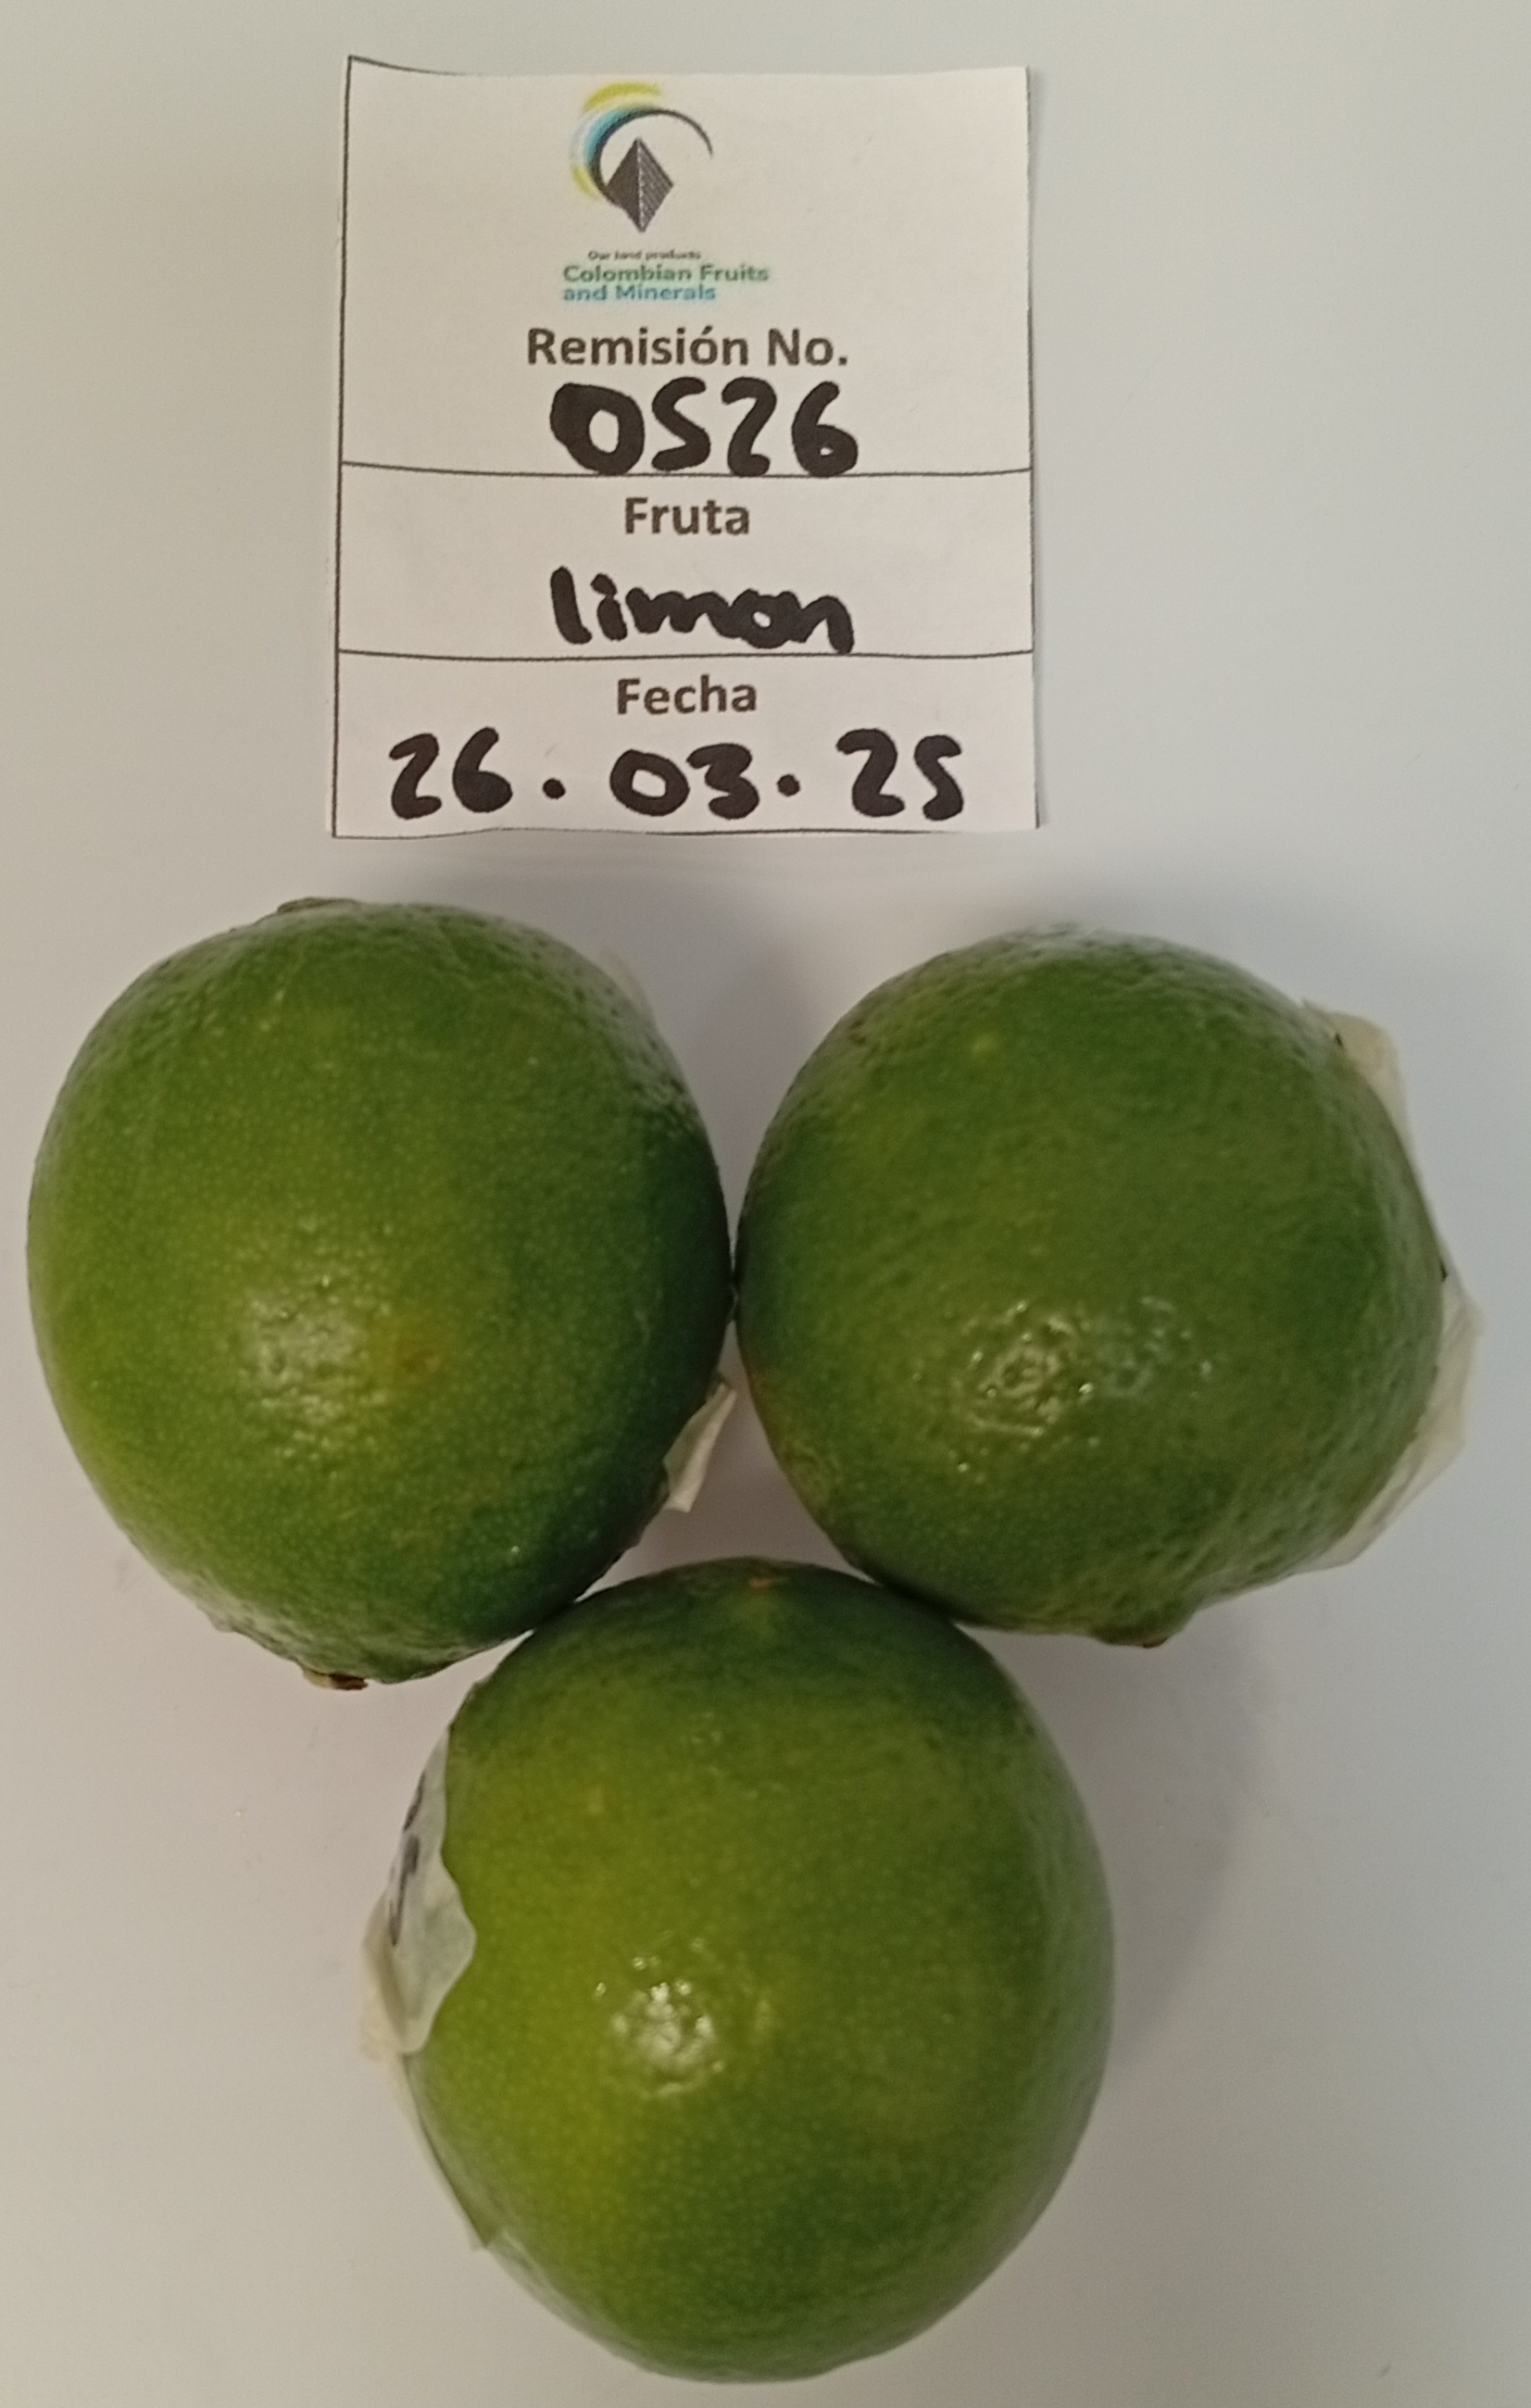 Our land products
Colombian Fruits
and Minerals
Remisión No.
0526
Fruta
limon
Fecha
26.03.25